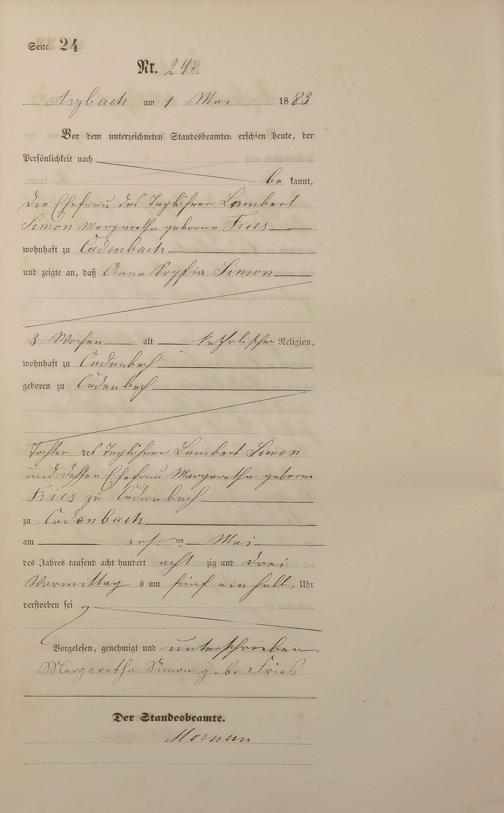 Seite 24
Nr. 24.
Arzbach am 1 Mai 1883
Vor dem unterzeichneten Standesbeamten erschien heute, der
Persönlichkeit nach
be kannt,
die Ehefrau des Taglöhner Lambert
Simon Margaretha geborene Fries
wohnhaft zu Cadenbach
und zeigte an, daß Anna Sophia Simon
8 Wochen alt katholischer Religion,
wohnhaft zu Cadenbach
geboren zu Cadenbach
Tochter des Taglöhner Lambert Simon
und dessen Ehefrau Margaretha geborene
Fries zu Cadenbach
zu Cadenbach
am ersten Mai
des Jahres tausend acht hundert acht zig und drei
Vormittag s um fünf einhalb Uhr
verstorben sei
Vorgelesen, genehmigt und unterschrieben
Margaretha Simon geb. Fries
Der Standesbeamte.